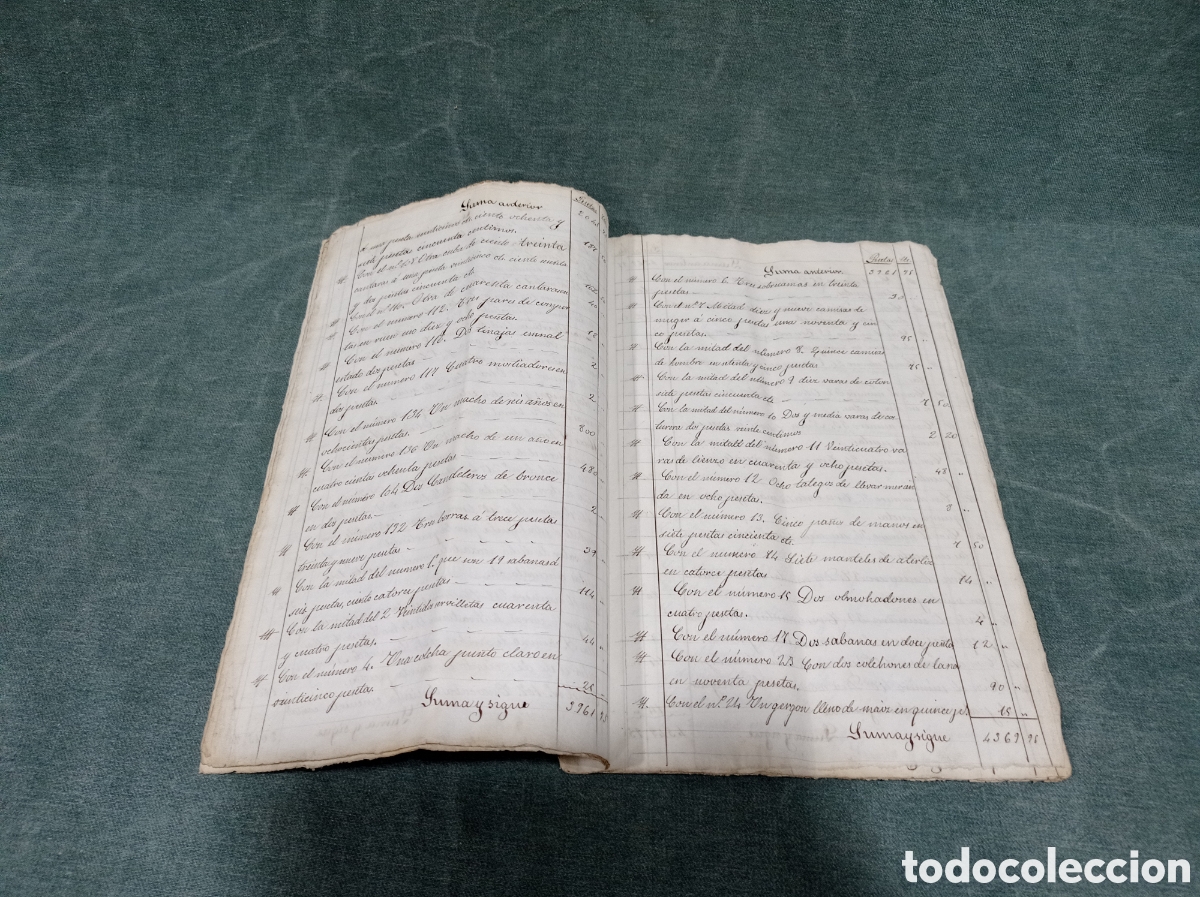 Suma anterior
Pesetas
2041
á una peseta cincuenta de ciento ochenta y
siete pesetas cincuenta centimos.
187
Con el nº 67 Otra cuba de ciento treinta
cantaras á una peseta
y dos pesetas cincuenta ct.
Otra de cuarenta cantaras en
40
Con el numero 112. Tres pares de
las en nueve mc diez y ocho pesetas.
Con el numero 116. Dos tinajas enmal
estado dos pesetas
2
Con el numero 117 Cuatro en
dos pesetas.
2
Con el número 134 Un macho de seis años en
ochocientas pesetas.
800
Con el número 136 Un macho de un año en
cuatro cientas ochenta pesetas
480
Con el número 164 Dos Candeleros de bronce
en dos pesetas.
2
Con el número 192 Tres borras á trece pesetas
treinta y nueve pesetas
39
Con la mitad del numero 1º que son 19 sabanas á
seis pesetas, ciento catorce pesetas
114 "
Con la mitad del 2 Veintidos servilletas cuarenta
y cuatro pesetas.
44 "
Con el número 4. Una colcha punto claro en
veinticinco pesetas.
25 "
Suma y sigue
3761 95
Pesetas
Suma anterior
95
Con el número 6. Tres sobrecamas en treinta
pesetas
30 "
Con el nº 7 Mitad diez y nueve camisas de
muger á cinco pesetas una noventa y cin
co pesetas.
95 "
Con la mitad del número 8. Quince camisas
de hombre en setenta y cinco pesetas
75 "
Con la mitad del número 9 diez varas de
siete pesetas cincuenta ct.
7 50
Con la mitad del número 10 Dos y media varas de
dos pesetas veinte centimos
2 20
Con la mitad del número 11 Veinticuatro va
ras de lienzo en cuarenta y ocho pesetas.
48 "
Con el número 12 Ocho talegos de llevar
da en ocho pesetas.
8 "
Con el número 13. Cinco paños de manos en
siete pesetas cincuenta ct.
7 50
Con el numero 14 Siete manteles de
en catorce pesetas
14 "
Con el número 15 Dos olmohadones en
cuatro pesetas.
4 "
Con el número 17. Dos sabanas en doce pesetas
12 "
Con el número 23 Con dos colchones de lana
en noventa pesetas.
90 "
Con el nº 24 Un gergon lleno de maiz en quince ps.
15 "
Suma y sigue
4361 95
todocoleccion